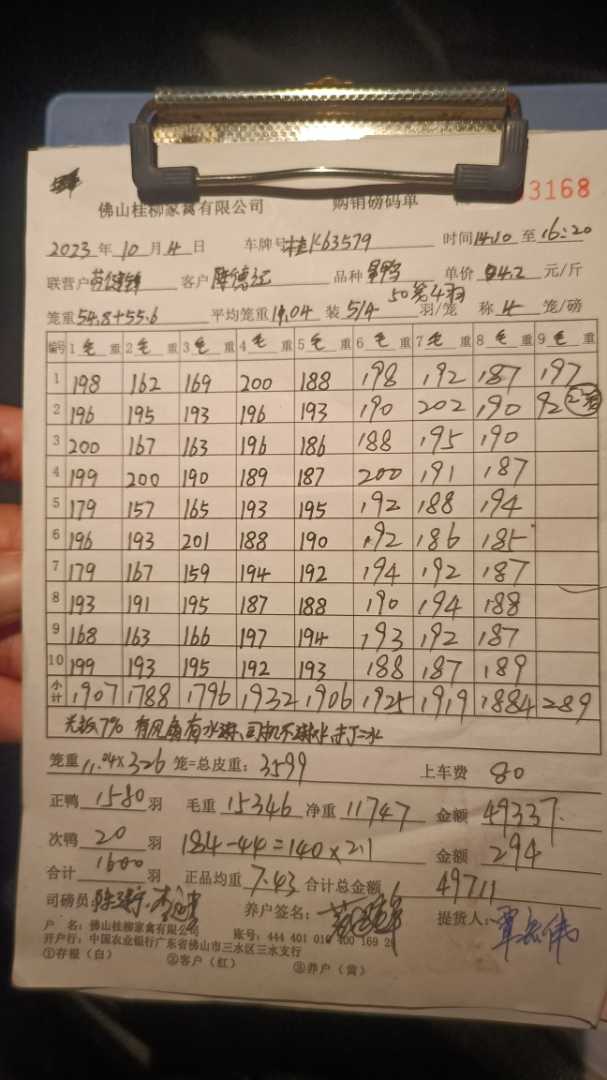 佛山桂柳家禽有限公司 购销磅码单 3168
2023年10月4日 车牌号桂K63579 时间14:10至16:20
联营户 客户 品种 单价 4.2 元/斤
50笼4羽
笼重54.8+55.6 平均笼重11.04 装5/4羽/笼 称4笼/磅
编号 1毛重 2毛重 3毛重 4毛重 5毛重 6毛重 7毛重 8毛重 9毛重
1 198 162 169 200 188 198 192 187 197
2 196 195 193 196 193 190 202 190 92
3 200 167 163 196 186 188 195 190
4 199 200 190 189 187 200 191 187
5 179 157 165 193 195 192 188 194
6 196 193 201 188 190 192 186 185
7 179 167 159 194 192 194 192 187
8 193 191 195 187 188 190 194 188
9 168 163 166 197 194 193 192 187
10 199 193 195 192 193 188 187 189
小计 1907 1788 1796 1932 1906 1925 1919 1884 289
7% 有风扇有水
笼重11.04×326笼=总皮重:3599 上车费 80
正鸭1580羽 毛重15346 净重11747 金额49337.
次鸭20羽 184-44=140×2.1 金额294
合计1600羽 正品均重7.43 合计总金额49711
司磅员 养户签名: 提货人:覃宏伟
户 名:佛山桂柳家禽有限公司 账号:444 401 010 400 169 2
开户行:中国农业银行广东省佛山市三水区三水支行
①存根(白) ②客户(红) ③养户(黄)